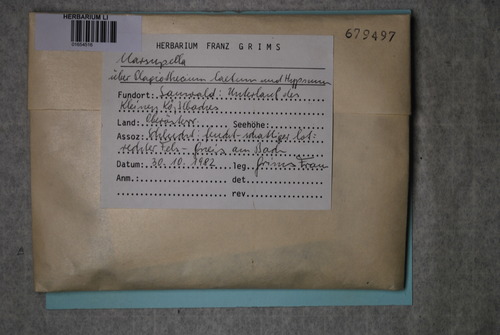 HERBARIUM LI
679497
HERBARIUM FRANZ GRIMS
Marsupella
über Plagiothecium laetum und Hypnum
Fundort: Sauwald: Unterlauf des
Kleinen Kößlbaches
Land: Oberösterr. Seehöhe:
Assoz: feucht-schattiger
Fels- am Bach
Datum: 30.10.1982 leg. Grims Franz
Anm.: det.
rev.